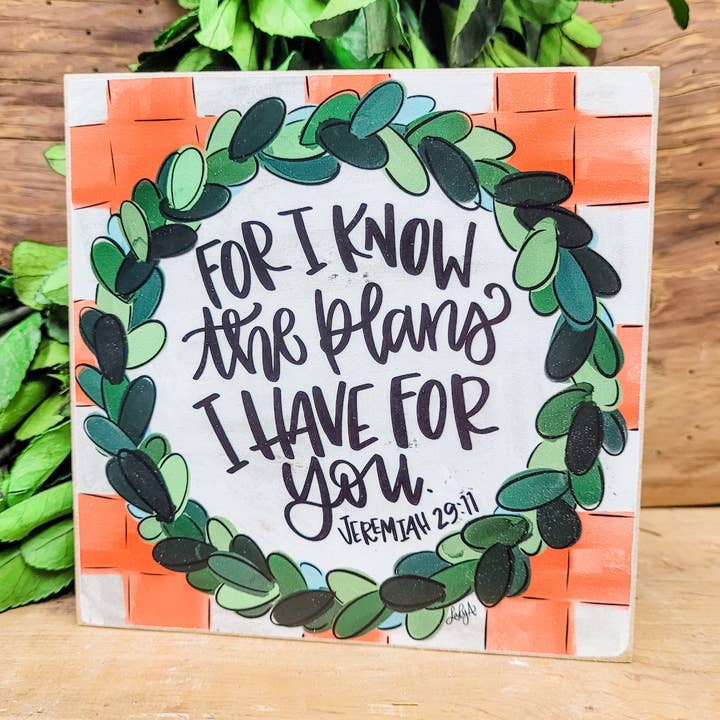 FOR I KNOW
the plans
I HAVE FOR
you.
JEREMIAH 29:11